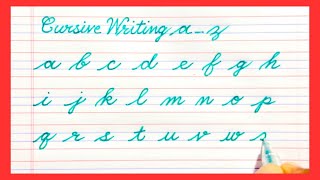 Cursive Writing a-z
a b c d e f g h
i j k l m n o p
q r s t u v w